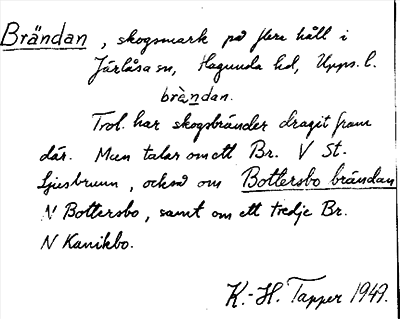 Brändan, skogsmark på flera håll i
Järlåsa sn, Hagunda hd, Upps. l.
brä̀ndan.
Trol. har skogsbränder dragit fram
där. Man talar om ett Br. V St.
Ljusbrunn, också om Bottersbo brändan
N Bottersbo, samt om ett tredje Br.
N Kanikbo.
K.-H. Tapper 1949.